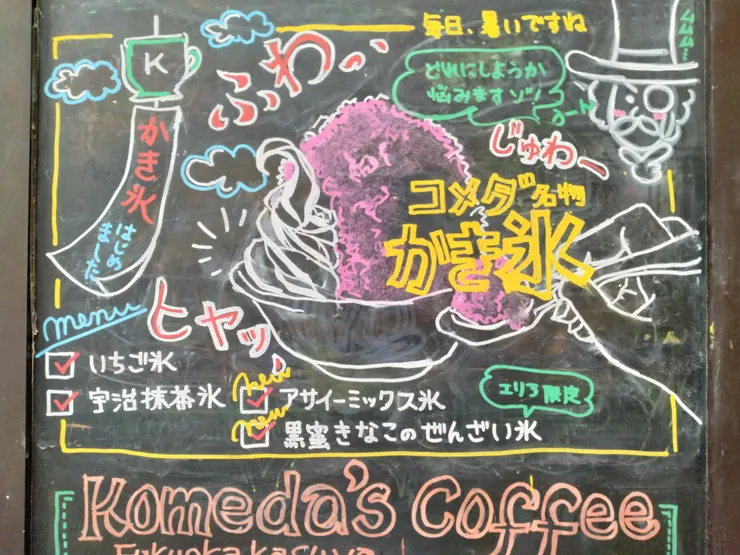 毎日、暑いですね
K
ふわぁ
どれにしようか
悩みますゾ!
じゅわー
かき氷
はじめました
コメダ名物
かき氷
menu
ヒヤッ
いちご氷
宇治抹茶氷
new
アサイーミックス氷
new
黒蜜きなこのぜんざい氷
エリア限定
Komeda's Coffee
Fukuoka